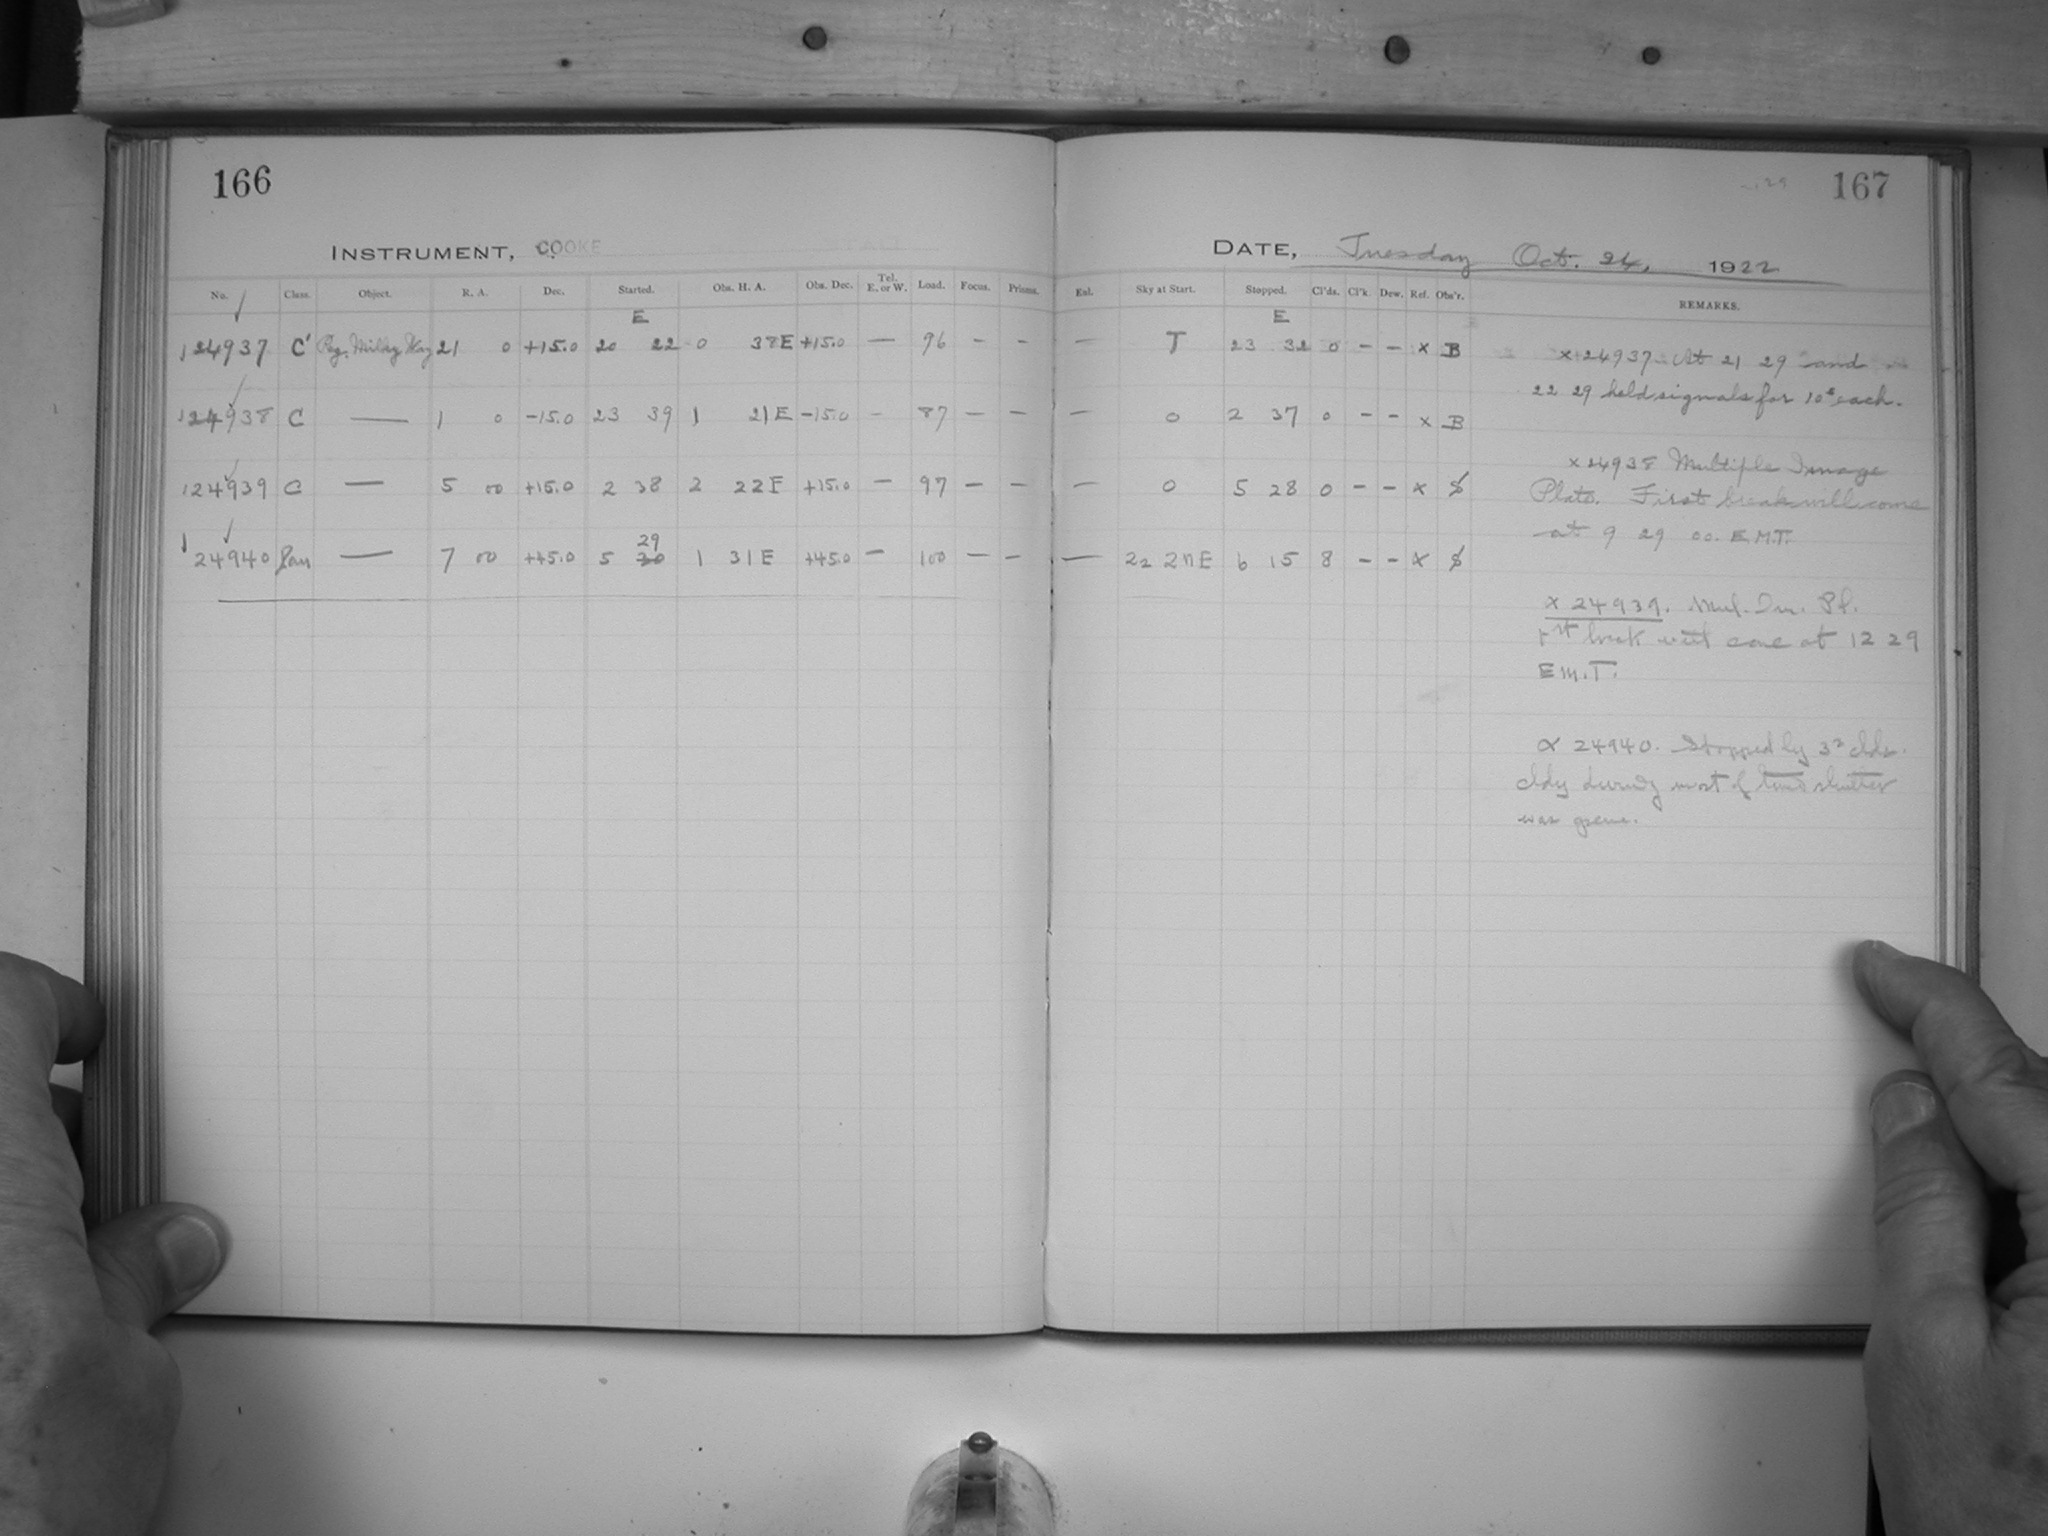 166
INSTRUMENT, COOKE
No. Class. Object. R. A. Dec. Started. Obs. H. A. Obs. Dec. Tel. E. or W. Load. Focus. Prisms.
E
124937 C' Reg. Milky Way 21 0 +15.0 20 22 0 38E +15.0 — 96 - -
124938 C — 1 0 -15.0 23 39 1 21E -15.0 - 87 - -
124939 C — 5 00 +15.0 2 38 2 22E +15.0 - 97 - -
29
124940 — 7 00 +45.0 5 30 1 31E +45.0 - 100 - -
167
DATE, Tuesday Oct. 24, 1922
Exl. Sky at Start. Stopped. Cl'ds. Cl'k. Dew. Ref. Obs'r. REMARKS.
E
— T 23 32 0 - - x B
— 0 2 37 0 - - x B
— 0 5 28 0 - - x $
— 22 2nE 6 15 8 - - x $
x 24937 At 21 29 and
22 29 held signals for 10s each.
x 24938 Multiple Image
Plate. First break will come
at 9 29 00. E.M.T.
x 24939. Mul. Im. Pl.
1st break will come at 12 29
E.M.T.
x 24940. Stopped by clds.
cldy during most of time shutter
was